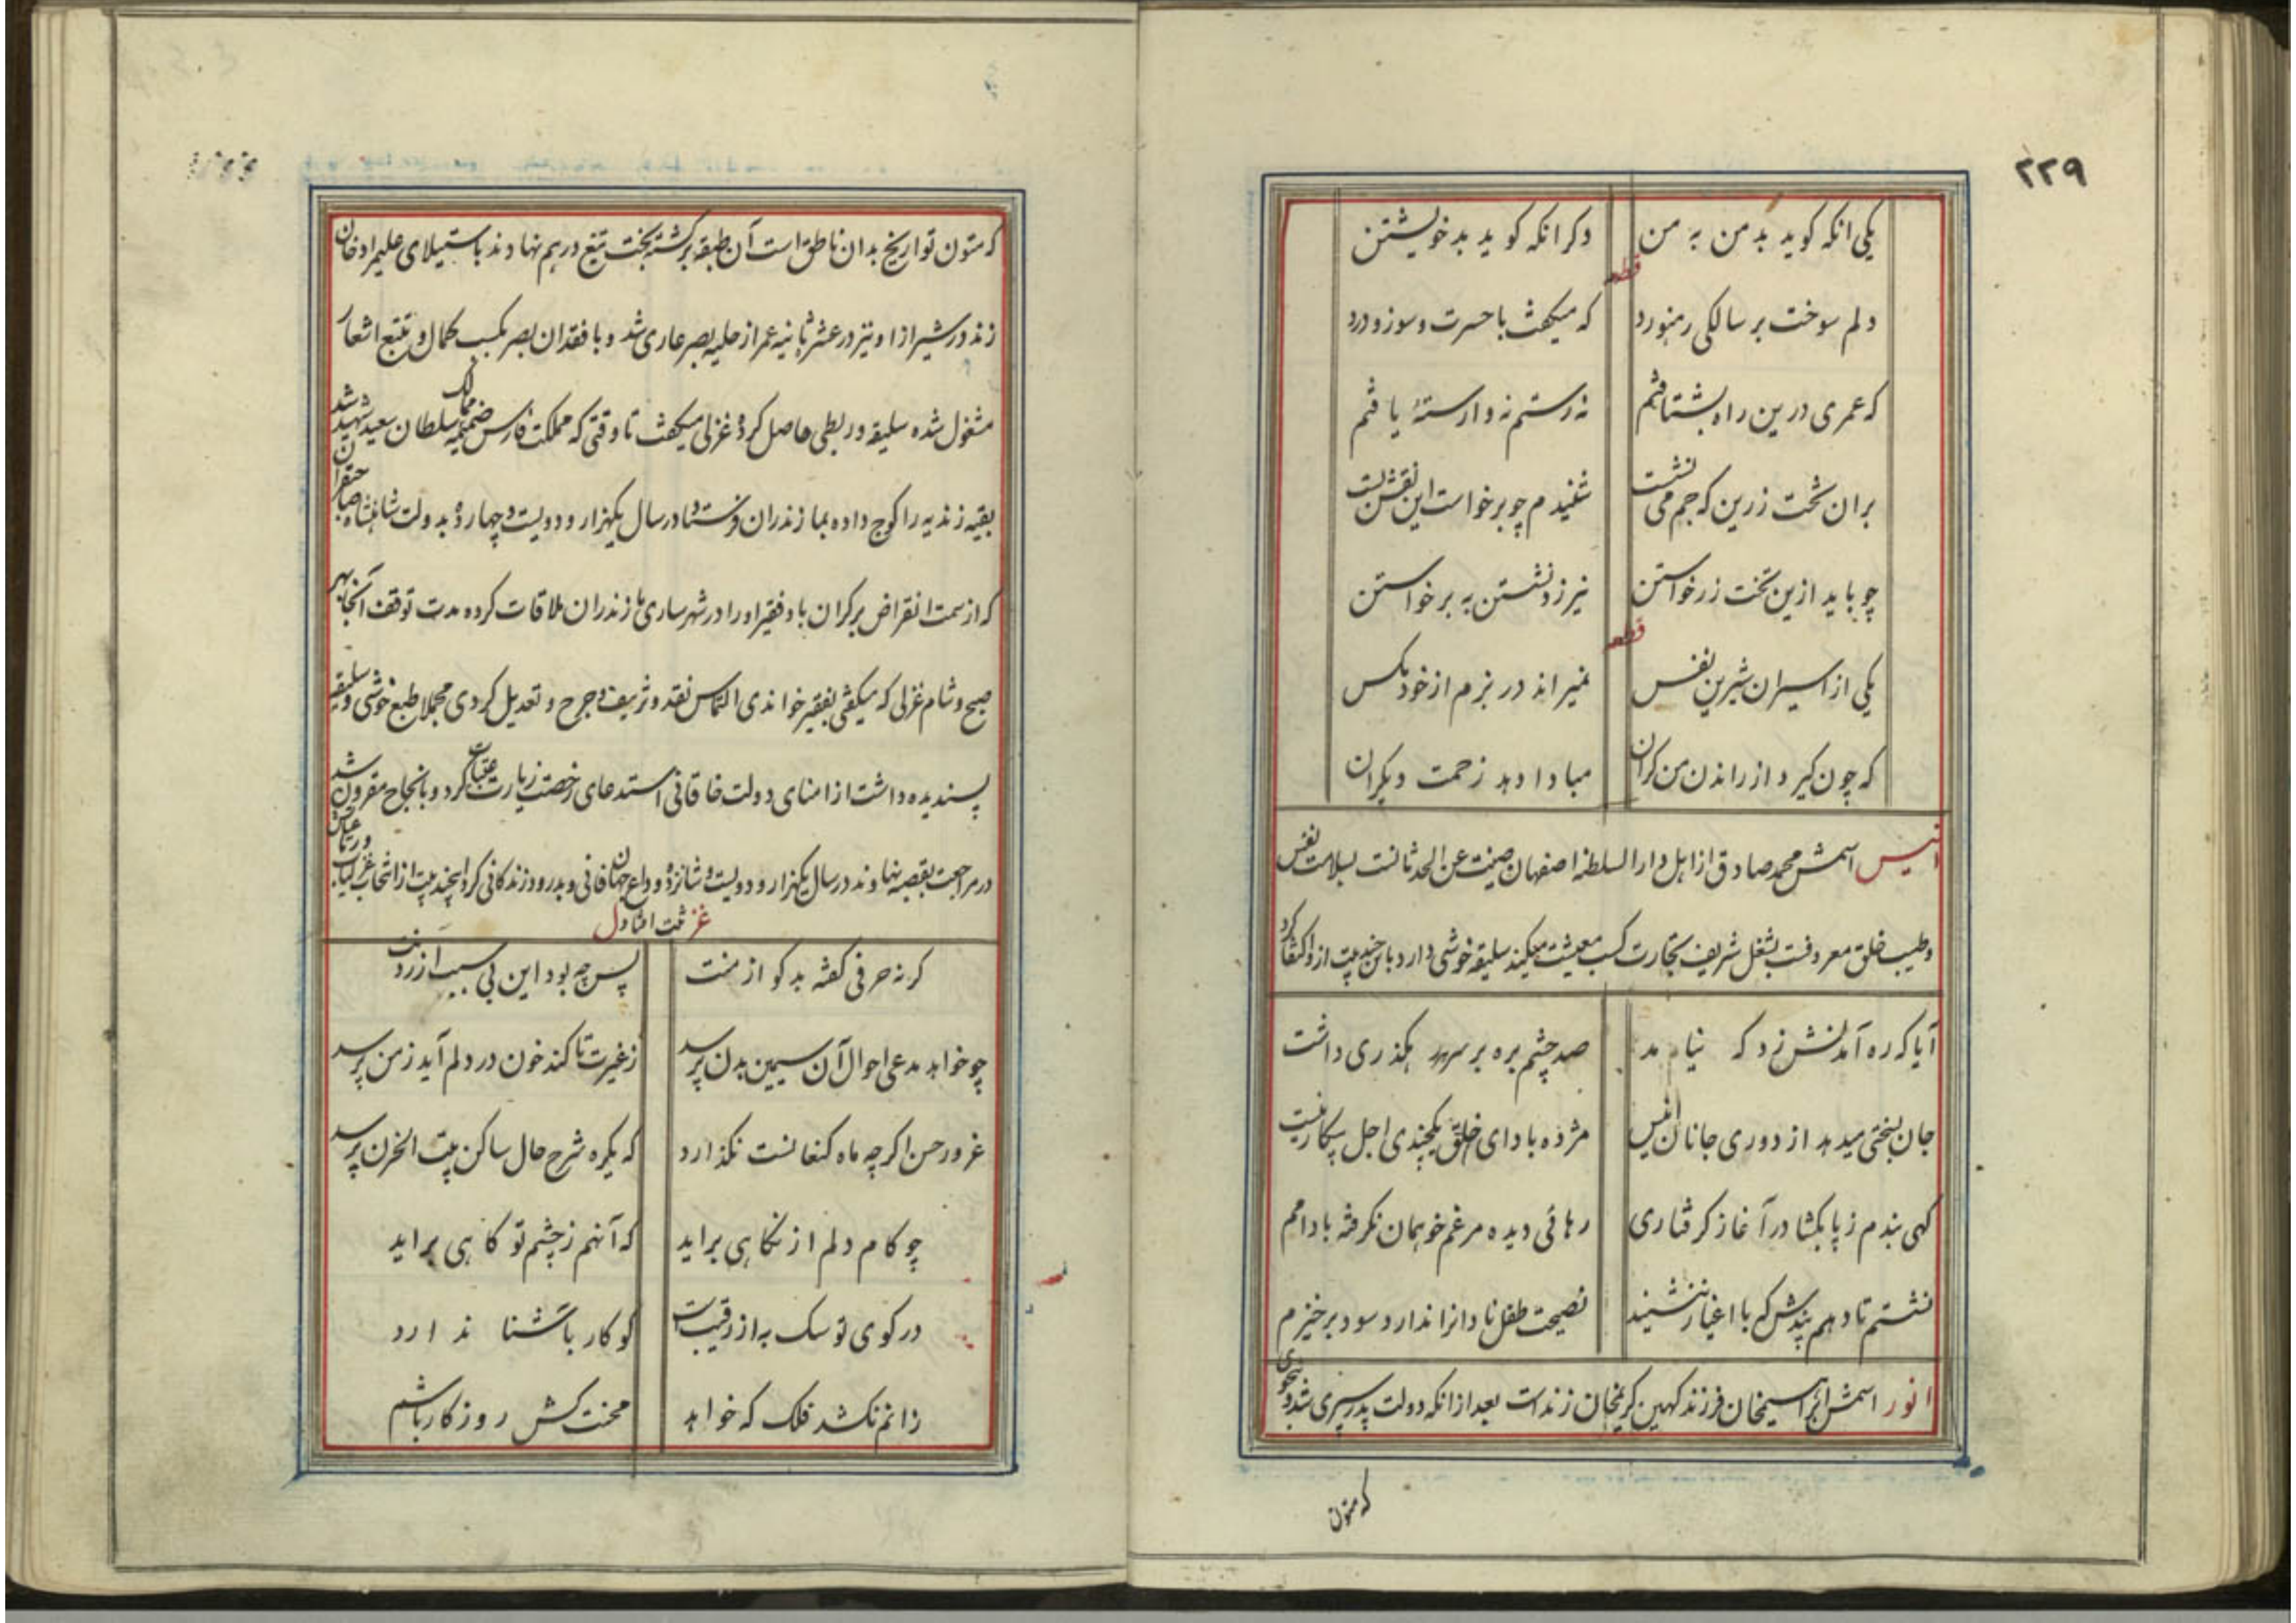 ۲۲۹
یکی انکه کوید بد من به من دکر انکه کوید بد خویشتن
قطعه
دلم سوخت بر سالکی رهنورد که میکفت با حسرت و سوز و درد
که عمری درین راه بشتافتم نه رستم نه وارستهٔ یافتم
بران تخت زرین که جم می نشست شنیدم چو برخواست این نقش بست
چو باید ازین تخت زر خواستن نیرزد نشستن به برخواستن
قطعه
یکی از اسیران شیرین نفس نمیراند در بزم از خود مکس
که چون کیرد از راندن من کران مبادا دهد زحمت دیکران
انیس اسمش محمد صادق از اهل دار السلطنه اصفهان صینت عن الحدثانست بسلامت نفس
و طیب خلق معروفست بشغل شریف تجارت کسب معیشت میکند سلیقه خوشی دارد باین چند بیت ازو اکتفا کرد
آیا که ره آمدنش زد که نیامد صد چشم بره بر سر هر رهکذری داشت
جان بسختی میدهد از دوری جانان انیس مژده باد ای خلق یکچندی اجل بیکار نیست
کهی بندم ز پا بکشا در آغاز کرفتاری رهائی دیده مرغم خو بهمان نکرفته با دامم
نشستم تا دهم پندش که با اغیار ننشیند نصیحت طفل نادانرا ندارد سود برخیزم
انور اسمش ابراهیمخان فرزند کهین کریمخان زند است بعد از انکه دولت پدر سپری شد و بنحوی
که متون
که متون تواریخ بدان ناطق است آن طبقه برکشته بخت تیغ در هم نهادند باستیلای علیمراد خان
زند در شیراز او نیز در عشر ثانیه عمر از حلیه بصر عاری شد و با فقدان بصر بکسب کمال و تتبع اشعار
مشغول شده سلیقه و ربطی حاصل کرده غزلی میکفت تا وقتی که مملکت فارس ضمیمه ممالک سلطان سعید شهید شد
بقیه زندیه را کوچ داده بمازندران فرستاد در سال یکهزار و دویست و چهارده بدولت شاهنشاه صاحبقران
که از سمت انقراض بر کران باد فقیر او را در شهر ساری مازندران ملاقات کرده مدت توقف آنجا بهر
صبح و شام غزلی که میکفتی بفقیر خواندی التماس نقد و تزییف و جرح و تعدیل کردی مجملا طبع خوشی و سلیقه
پسندیده داشت از امنای دولت خاقانی استدعای رخصت زیارت عتبات کرد و بانجاح مقرون شد
در مراجعت بقصبه نهاوند در سال یکهزار و دویست و شانزده وداع جهان فانی و بدرود زندکانی کرد اینچند بیت از انتخاب غزلیات
ثبت افتاد غزل
کرنه حرفی کفته بدکو از منت پس چه بود این بی سبب ازردنت
چو خواهد مدعی احوال آن سیمین بدن پرسد ز غیرت تا کند خون در دلم آید ز من پرسد
غرور حسن اکرچه ماه کنعانست نکذارد که یکره شرح حال ساکن بیت الحزن پرسد
چو کام دلم از نکاهی براید که آنهم ز چشم تو کاهی براید
در کوی تو سک به از رقیب است کو کار باشنا ندارد
زانم نکشد فلک که خواهد محنت کش روزکار باشم